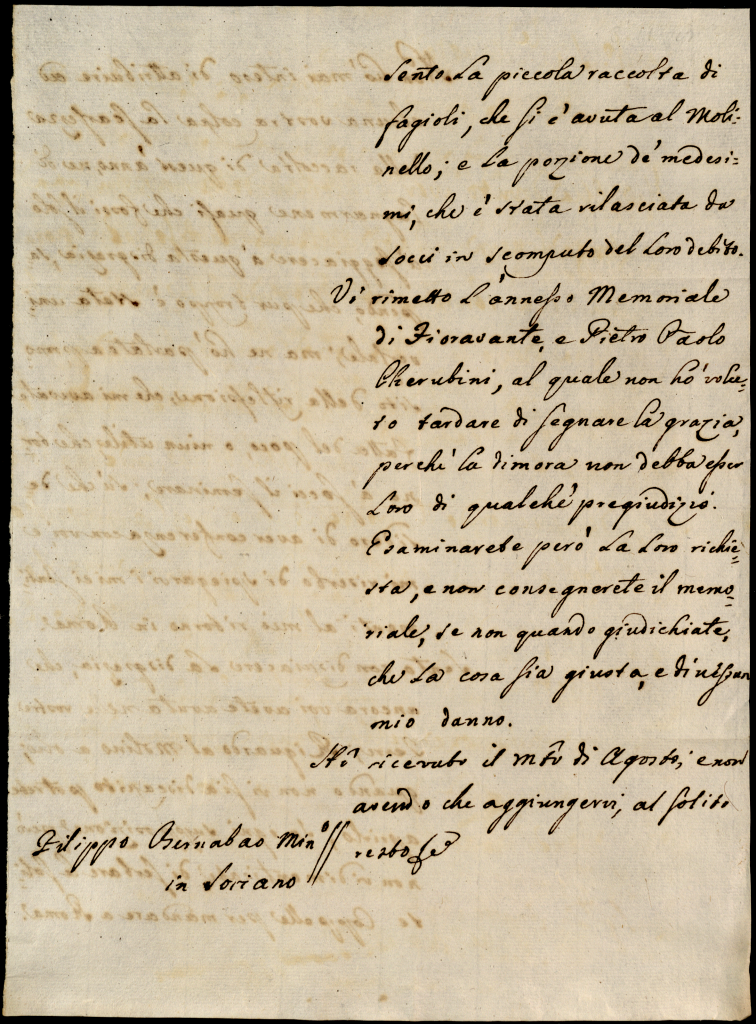 Sento La piccola raccolta di
fagioli, che si è avuta al Moli=
nello; e La porzione de' medesi=
mi, che è stata rilasciata da
socci in scomputo del Loro debito.
Vi rimetto L'annesso Memoriale
di Fioravante, e Pietro Paolo
Cherubini, al quale non hò volu=
to tardare di segnare la grazia,
perchè la dimora non debba esser
Loro di qualche pregiudizio.
Esaminarete però La Loro richie=
sta, e non consegnerete il memo=
riale, se non quando giudichiate,
che La cosa sia giusta, e di nessun
mio danno.
Hò ricevuto il mtrō di Agosto; e non
avendo che aggiungervi, al solito
resto
Filippo Bernabao Min.o
in Soriano